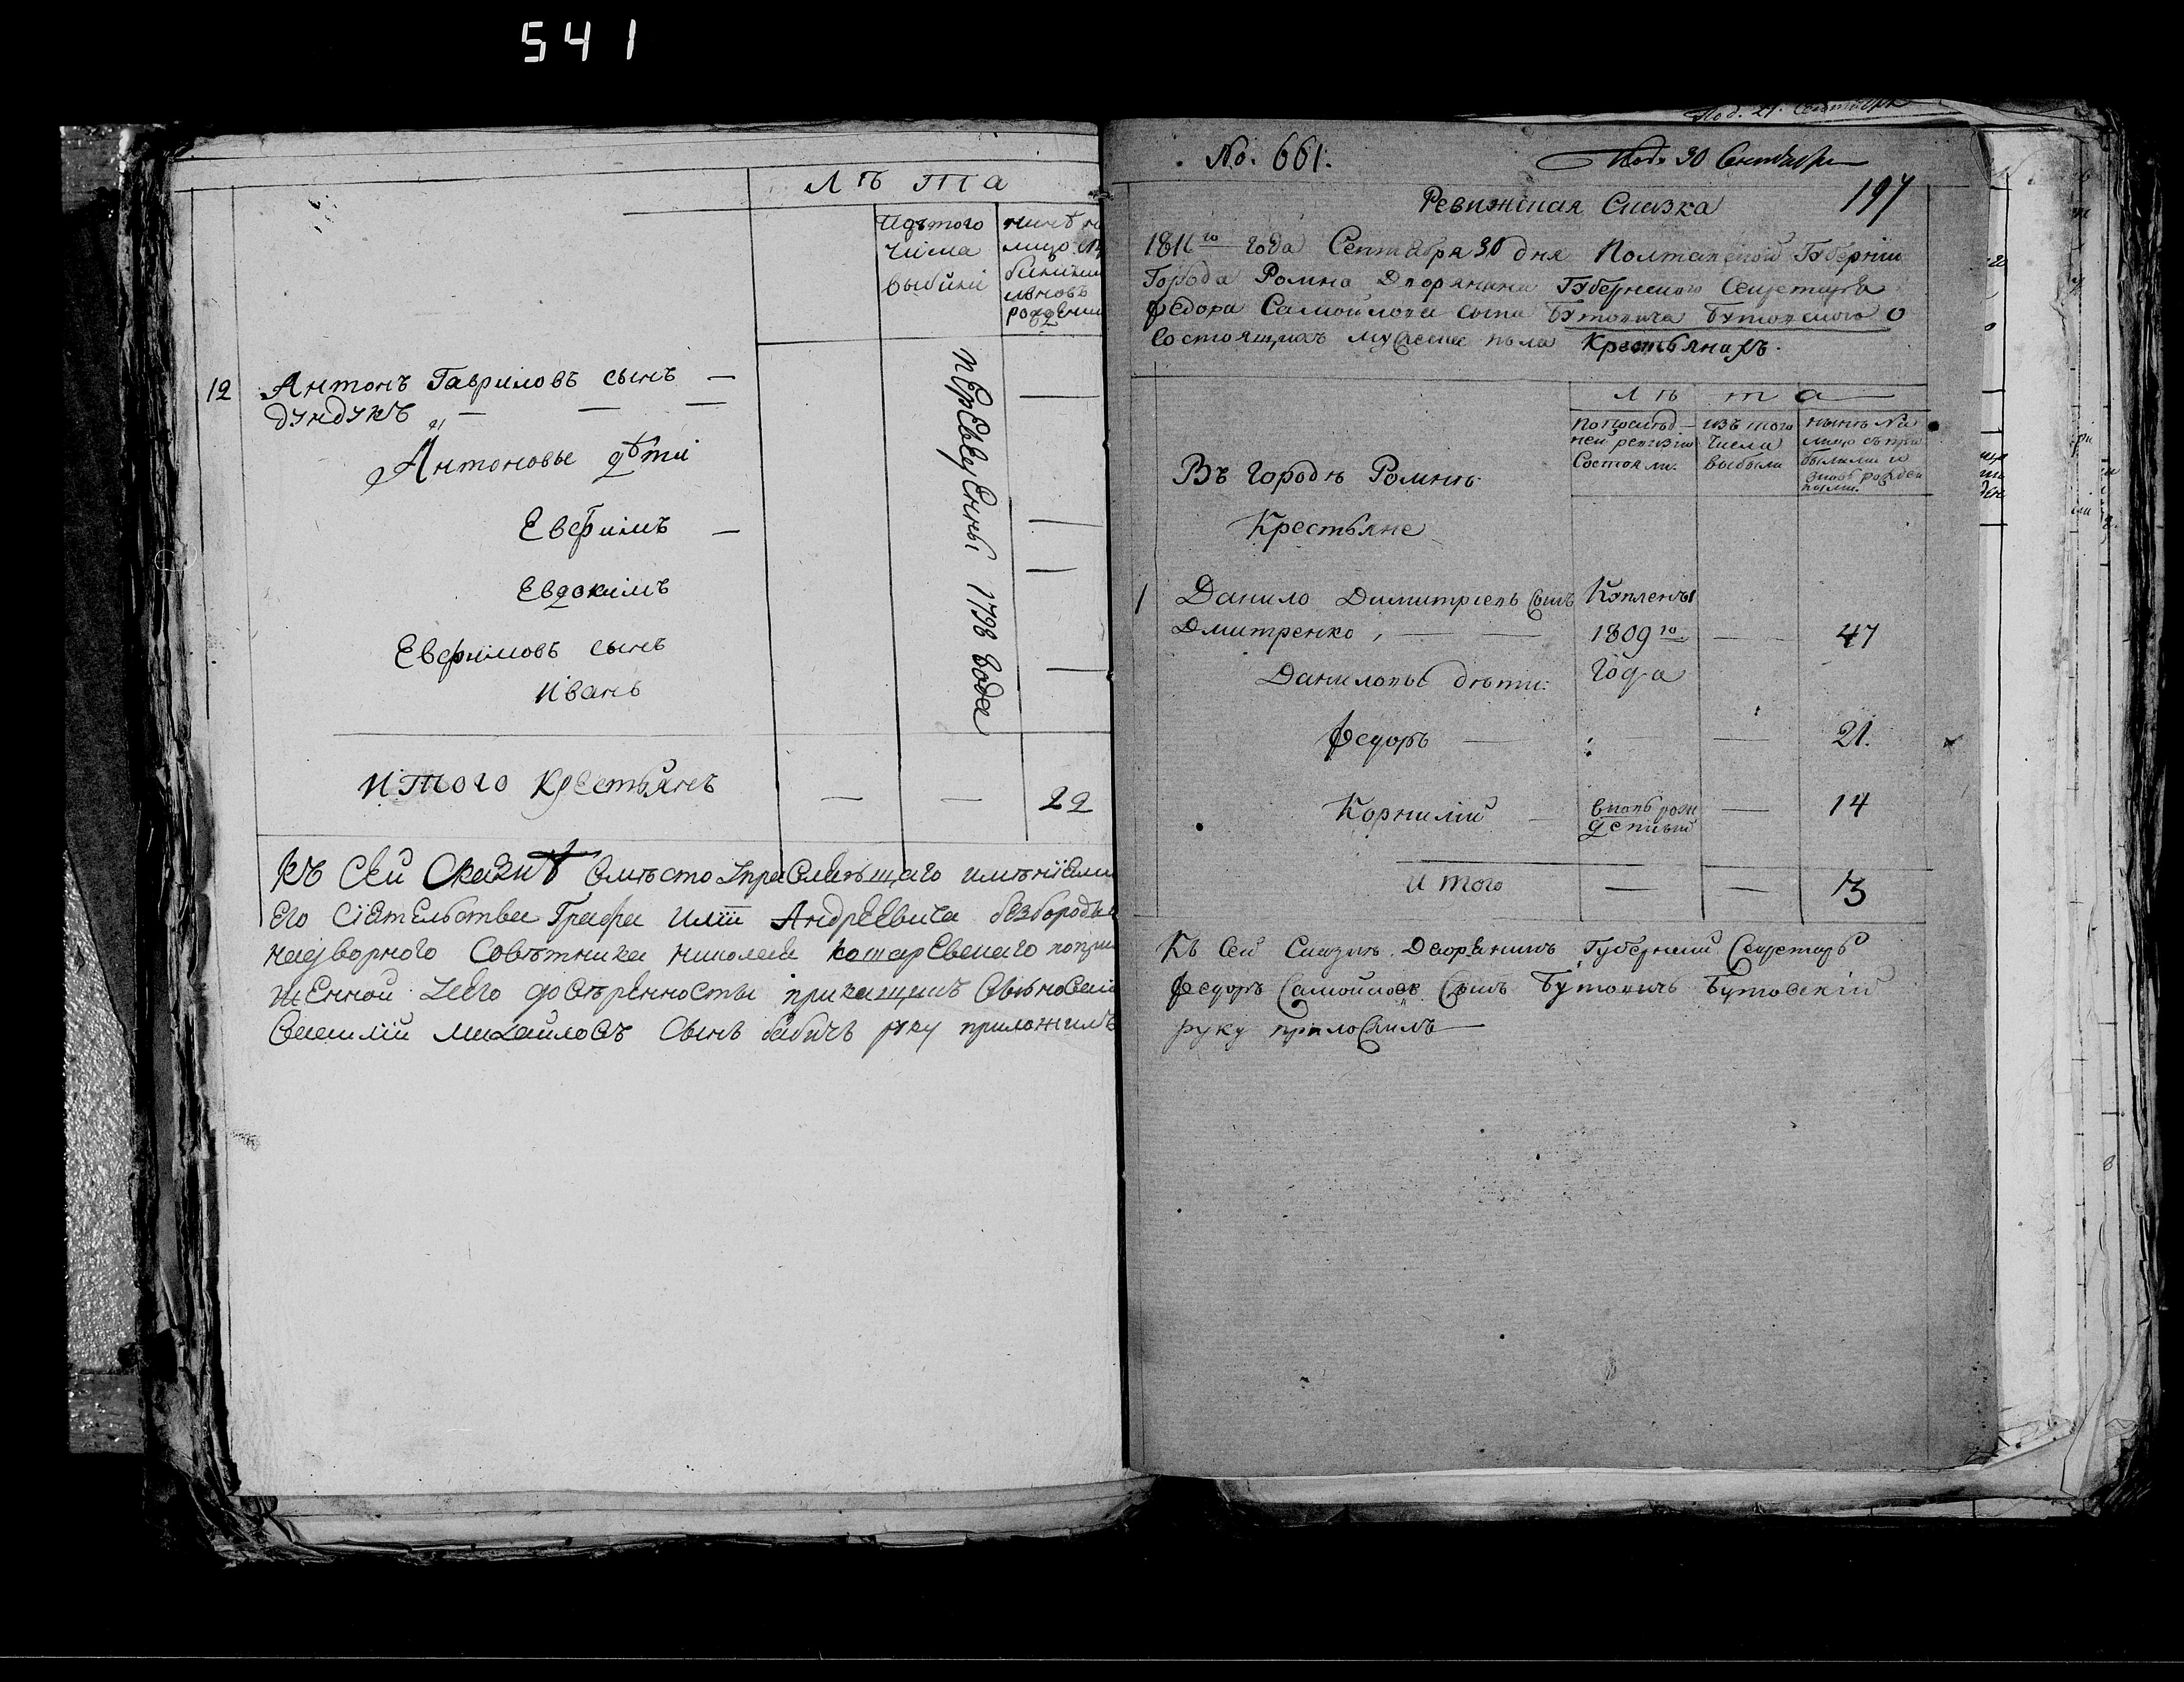 541
Лѣта
Идѣтого
числа
выбили
рожденн
12 Антонъ Гавриловъ сынъ —
дундукъ „ — — —
Антоновы дѣти
Евфимъ —
Евдокимъ
Евфимовъ сынъ
Иванъ
переведены 1798 года
Итого крестьянъ — — 22
Къ Сей Сказкѣ вмѣсто управляющаго имѣніями
его сіятельства Графа Иліи Андреевича безбородка
надворного Совѣтника николая котаревскаго попри
женной у него довѣренности прикащикъ
Василій михайловъ сынъ бабичъ руку приложилъ
Под. 27. Сентября
No. 661. Под. 30 Сентября
197
Ревижская Сказка
1811го года Сентября 30 дня Полтавской Губерніи
Города Ромна Дворянина Губернского Секретаря
федора Самойлова сына Бутовича Бутовского о
состоящихъ мужеска пола Крестьянахъ.
Лѣта
по послѣд-
ней ревизіи
состояли.
изъ того
числа
выбыло
нынѣ на
лицо съ при
былыми и
вновь рожден
ными.
Въ Городѣ Ромнѣ
Крестьяне
1 Данило Димитріевъ сынъ Купленъ
Дмитренко, — — 1809го — 47
Даниловы дѣти: года
федоръ — — — 21.
Корнилій — вновь рож
денный — 14
Итого — — 3
Къ Сей Сказкѣ Дворянинъ Губернскій Секретарь
федоръ Самойловъ Сынъ Бутовичъ Бутовскій
руку приложилъ